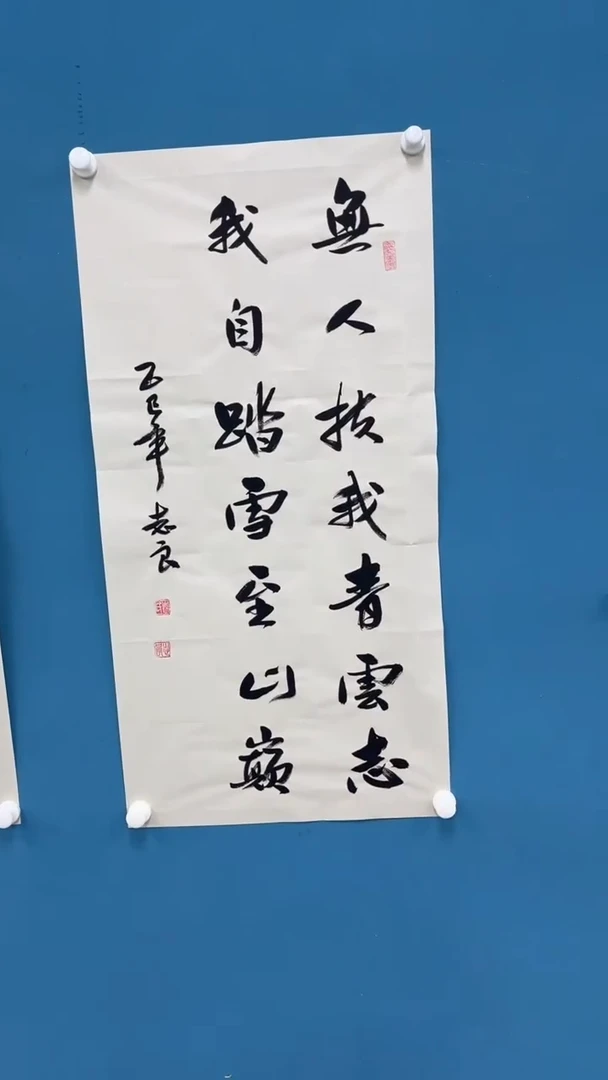 無人扶我青雲志
我自踏雪至山巔
乙巳年 志良